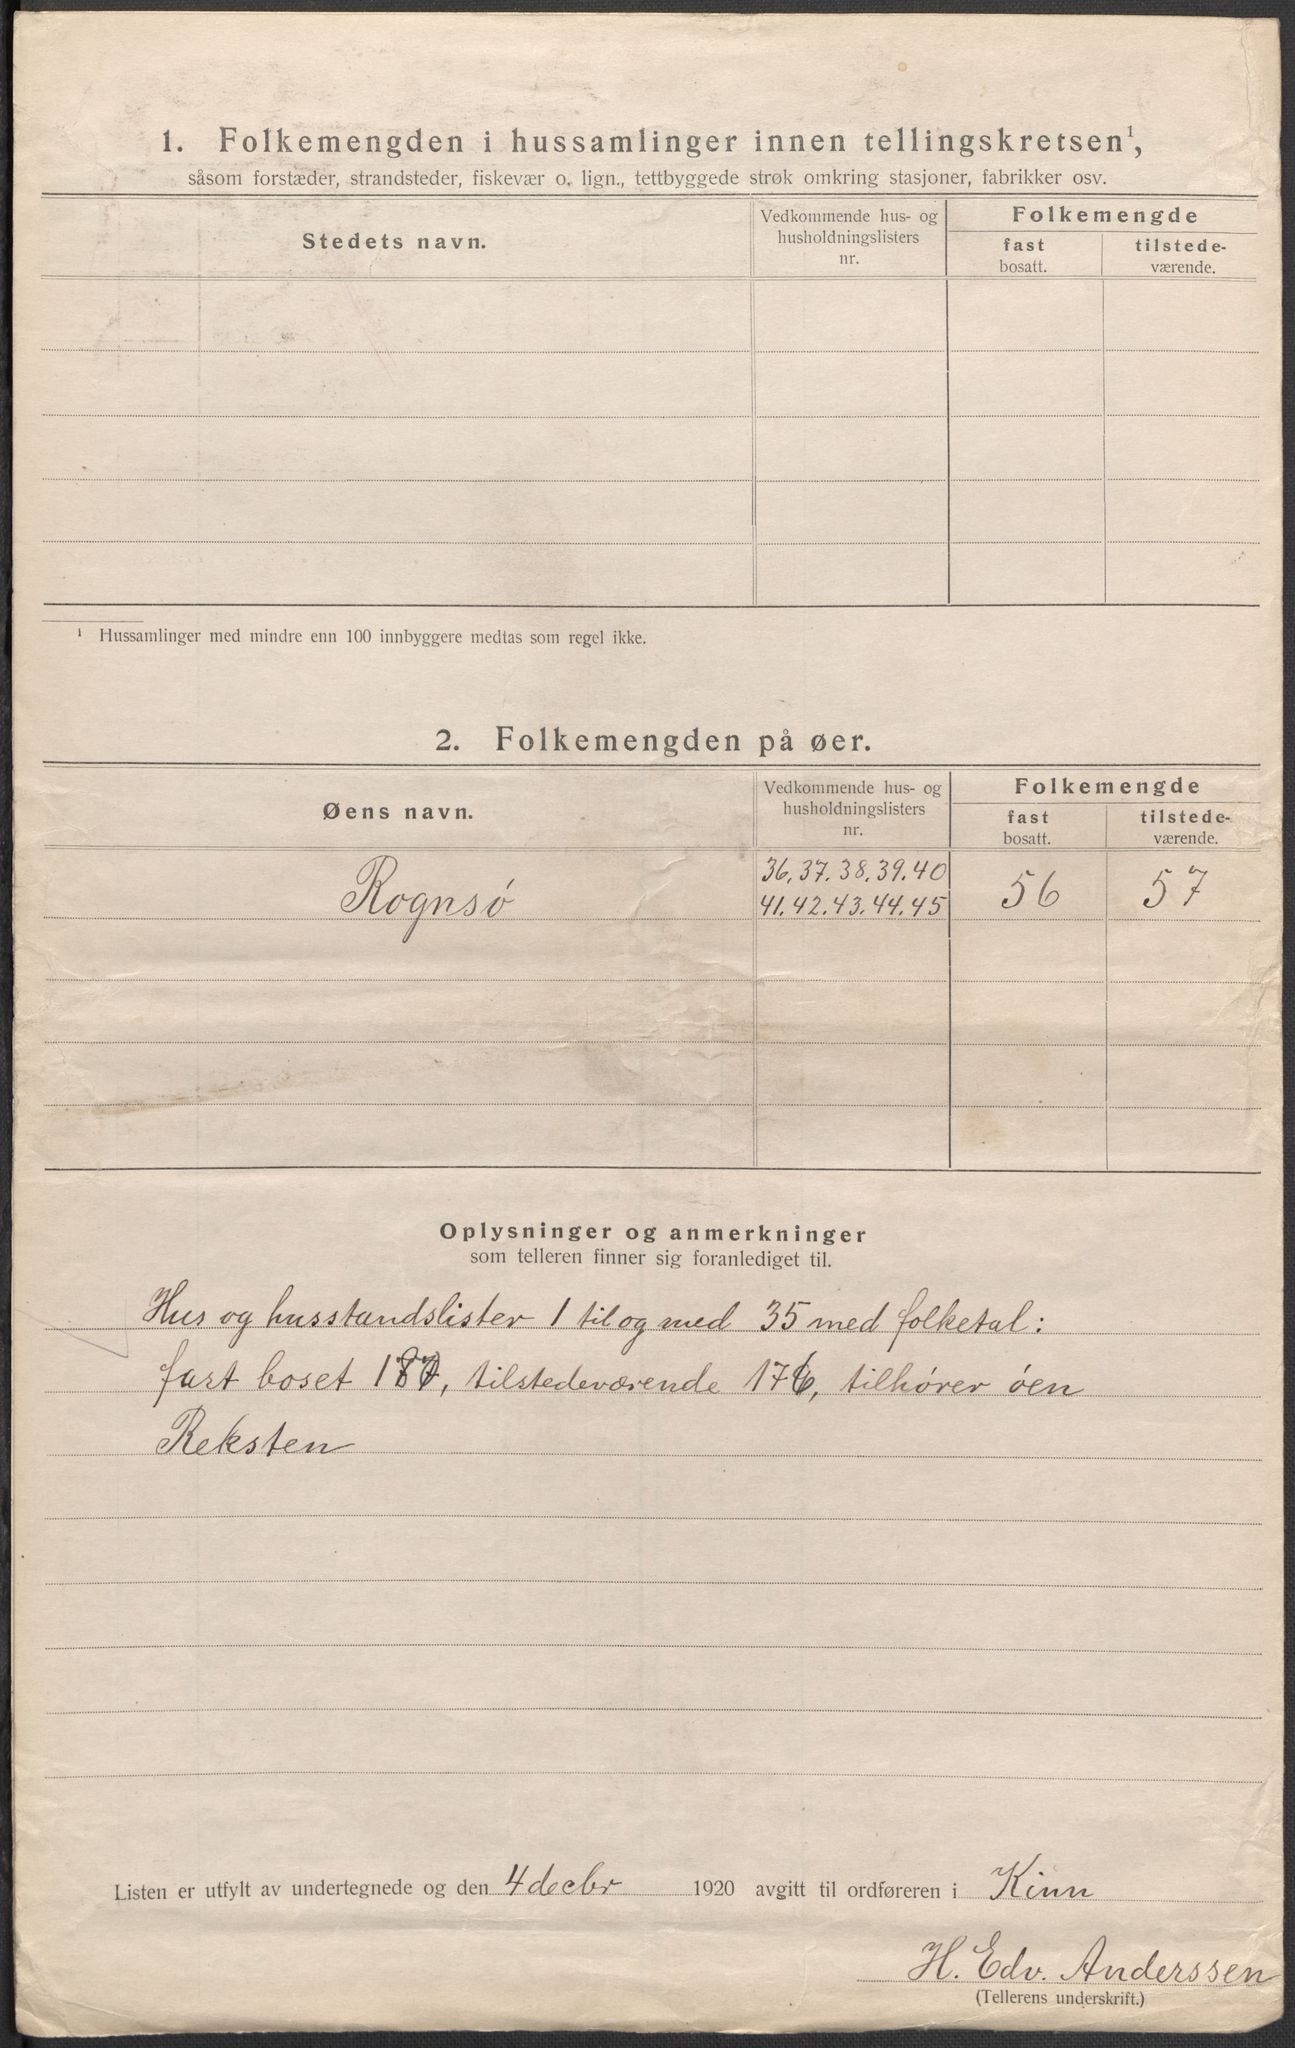 1. Folkemengden i hussamlinger innen tellingskretsen¹,
såsom forstæder, strandsteder, fiskevær o. lign., tettbyggede strøk omkring stasjoner, fabrikker osv.
Stedets navn.
Vedkommende hus- og
husholdningslisters
nr.
Folkemengde
fast
bosatt.
tilstede-
værende.
¹ Hussamlinger med mindre enn 100 innbyggere medtas som regel ikke.
2. Folkemengden på øer.
Øens navn.
Vedkommende hus- og
husholdningslisters
nr.
Folkemengde
fast
bosatt.
tilstede-
værende.
Rognsø
36.37.38.39.40
41.42.43.44.45
56
57
Oplysninger og anmerkninger
som telleren finner sig foranlediget til.
Hus og husstandslister 1 til og med 35 med folketal:
fast boset, tilstedeværende 176, tilhører øen
Reksten
Listen er utfylt av undertegnede og den 4 decbr 1920 avgitt til ordføreren i Kinn
H. Edv. Anderssen
(Tellerens underskrift.)